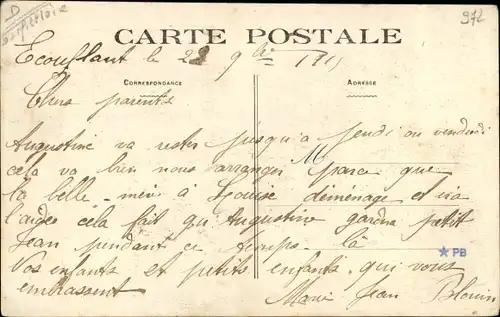 972
CARTE POSTALE
Ecouflant le 28 9bre
CORRESPONDANCE
ADRESSE
Chers parents
Augustine va rester jusqu'a jeudi ou vendredi
cela va bien nous arranger parce que
M
la belle-mère à Louise déménage et ira
l'aider cela fait qu'Augustine gardra petit
Jean pendant ce temps-là
★PB
Vos enfants et petits enfants qui vous
embrassent
Marie Jean Blouin